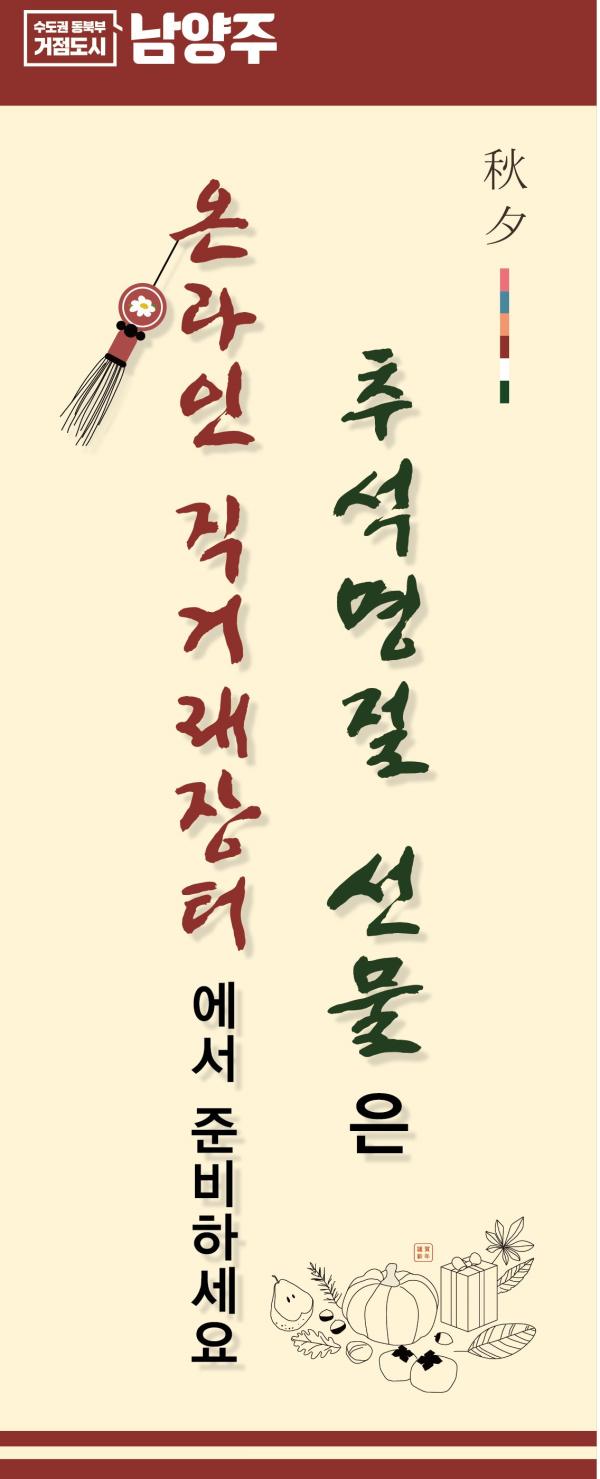 수도권 동북부
거점도시
남양주
秋夕
추석명절 선물은
온라인 직거래장터에서 준비하세요
謹賀
新年